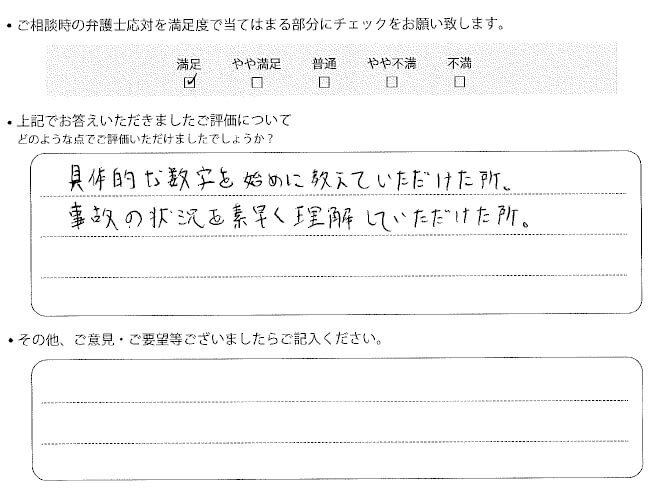 • ご相談時の弁護士応対を満足度で当てはまる部分にチェックをお願い致します。
満足 やや満足 普通 やや不満 不満
☑ ☐ ☐ ☐ ☐
• 上記でお答えいただきましたご評価について
どのような点でご評価いただけましたでしょうか？
具体的な数字を始めに教えていただけた所。
事故の状況を素早く理解していただけた所。
• その他、ご意見・ご要望等ございましたらご記入ください。